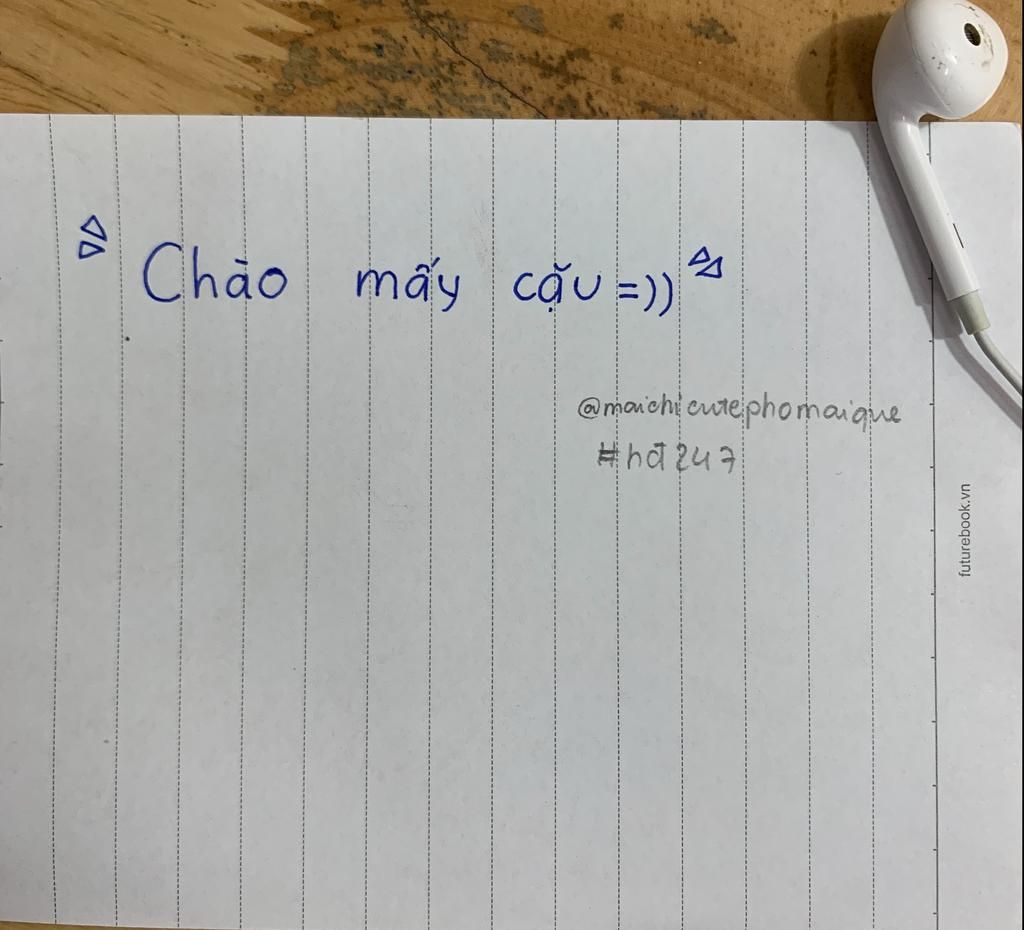 Chào mấy cậu =))
@maichicutephomaique
#hđ247
futurebook.vn